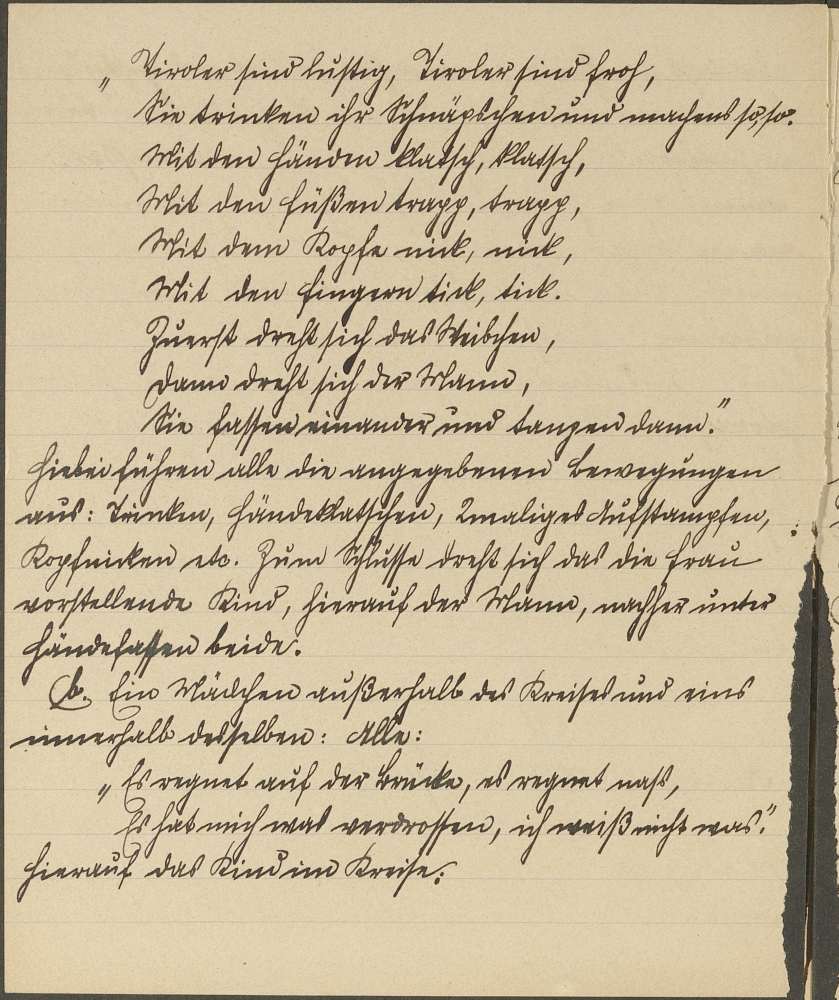 „Tiroler sind lustig, Tiroler sind froh,
Sie trinken ihr Schnäpschen und machens so, so.
Mit den Händen klatsch, klatsch,
Mit den Füßen trapp, trapp,
Mit dem Kopfe nick, nick,
Mit den Fingern tick, tick.
Zuerst dreht sich das Weibchen,
Dann dreht sich der Mann,
Sie fassen einander und tanzen dann."
Hiebei führen alle die angegebenen Bewegungen
aus: Trinken, Händeklatschen, 2maliges Aufstampfen,
Kopfnicken etc. Zum Schlusse dreht sich das die Frau
vorstellende Kind, hierauf der Mann, nachher unter
Händefassen beide.
b. Ein Mädchen außerhalb des Kreises und eins
innerhalb desselben: Alle:
„Es regnet auf der Brücke, es regnet naß,
Es hat mich was verdrossen, ich weiß nicht was."
Hierauf das Kind im Kreise: